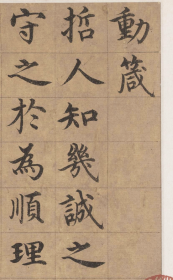 動箴
哲人知幾誠之
守之於為順理